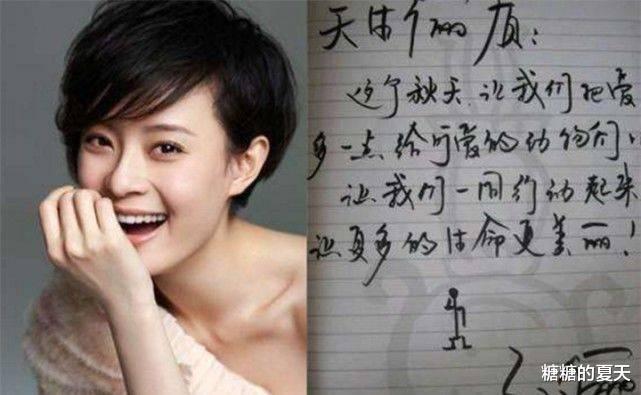 天生丽质:
这个秋天让我们把爱
多一点给可爱的动物们!
让我们一同行动起来
让更多的生命更美丽!
糖糖的夏天